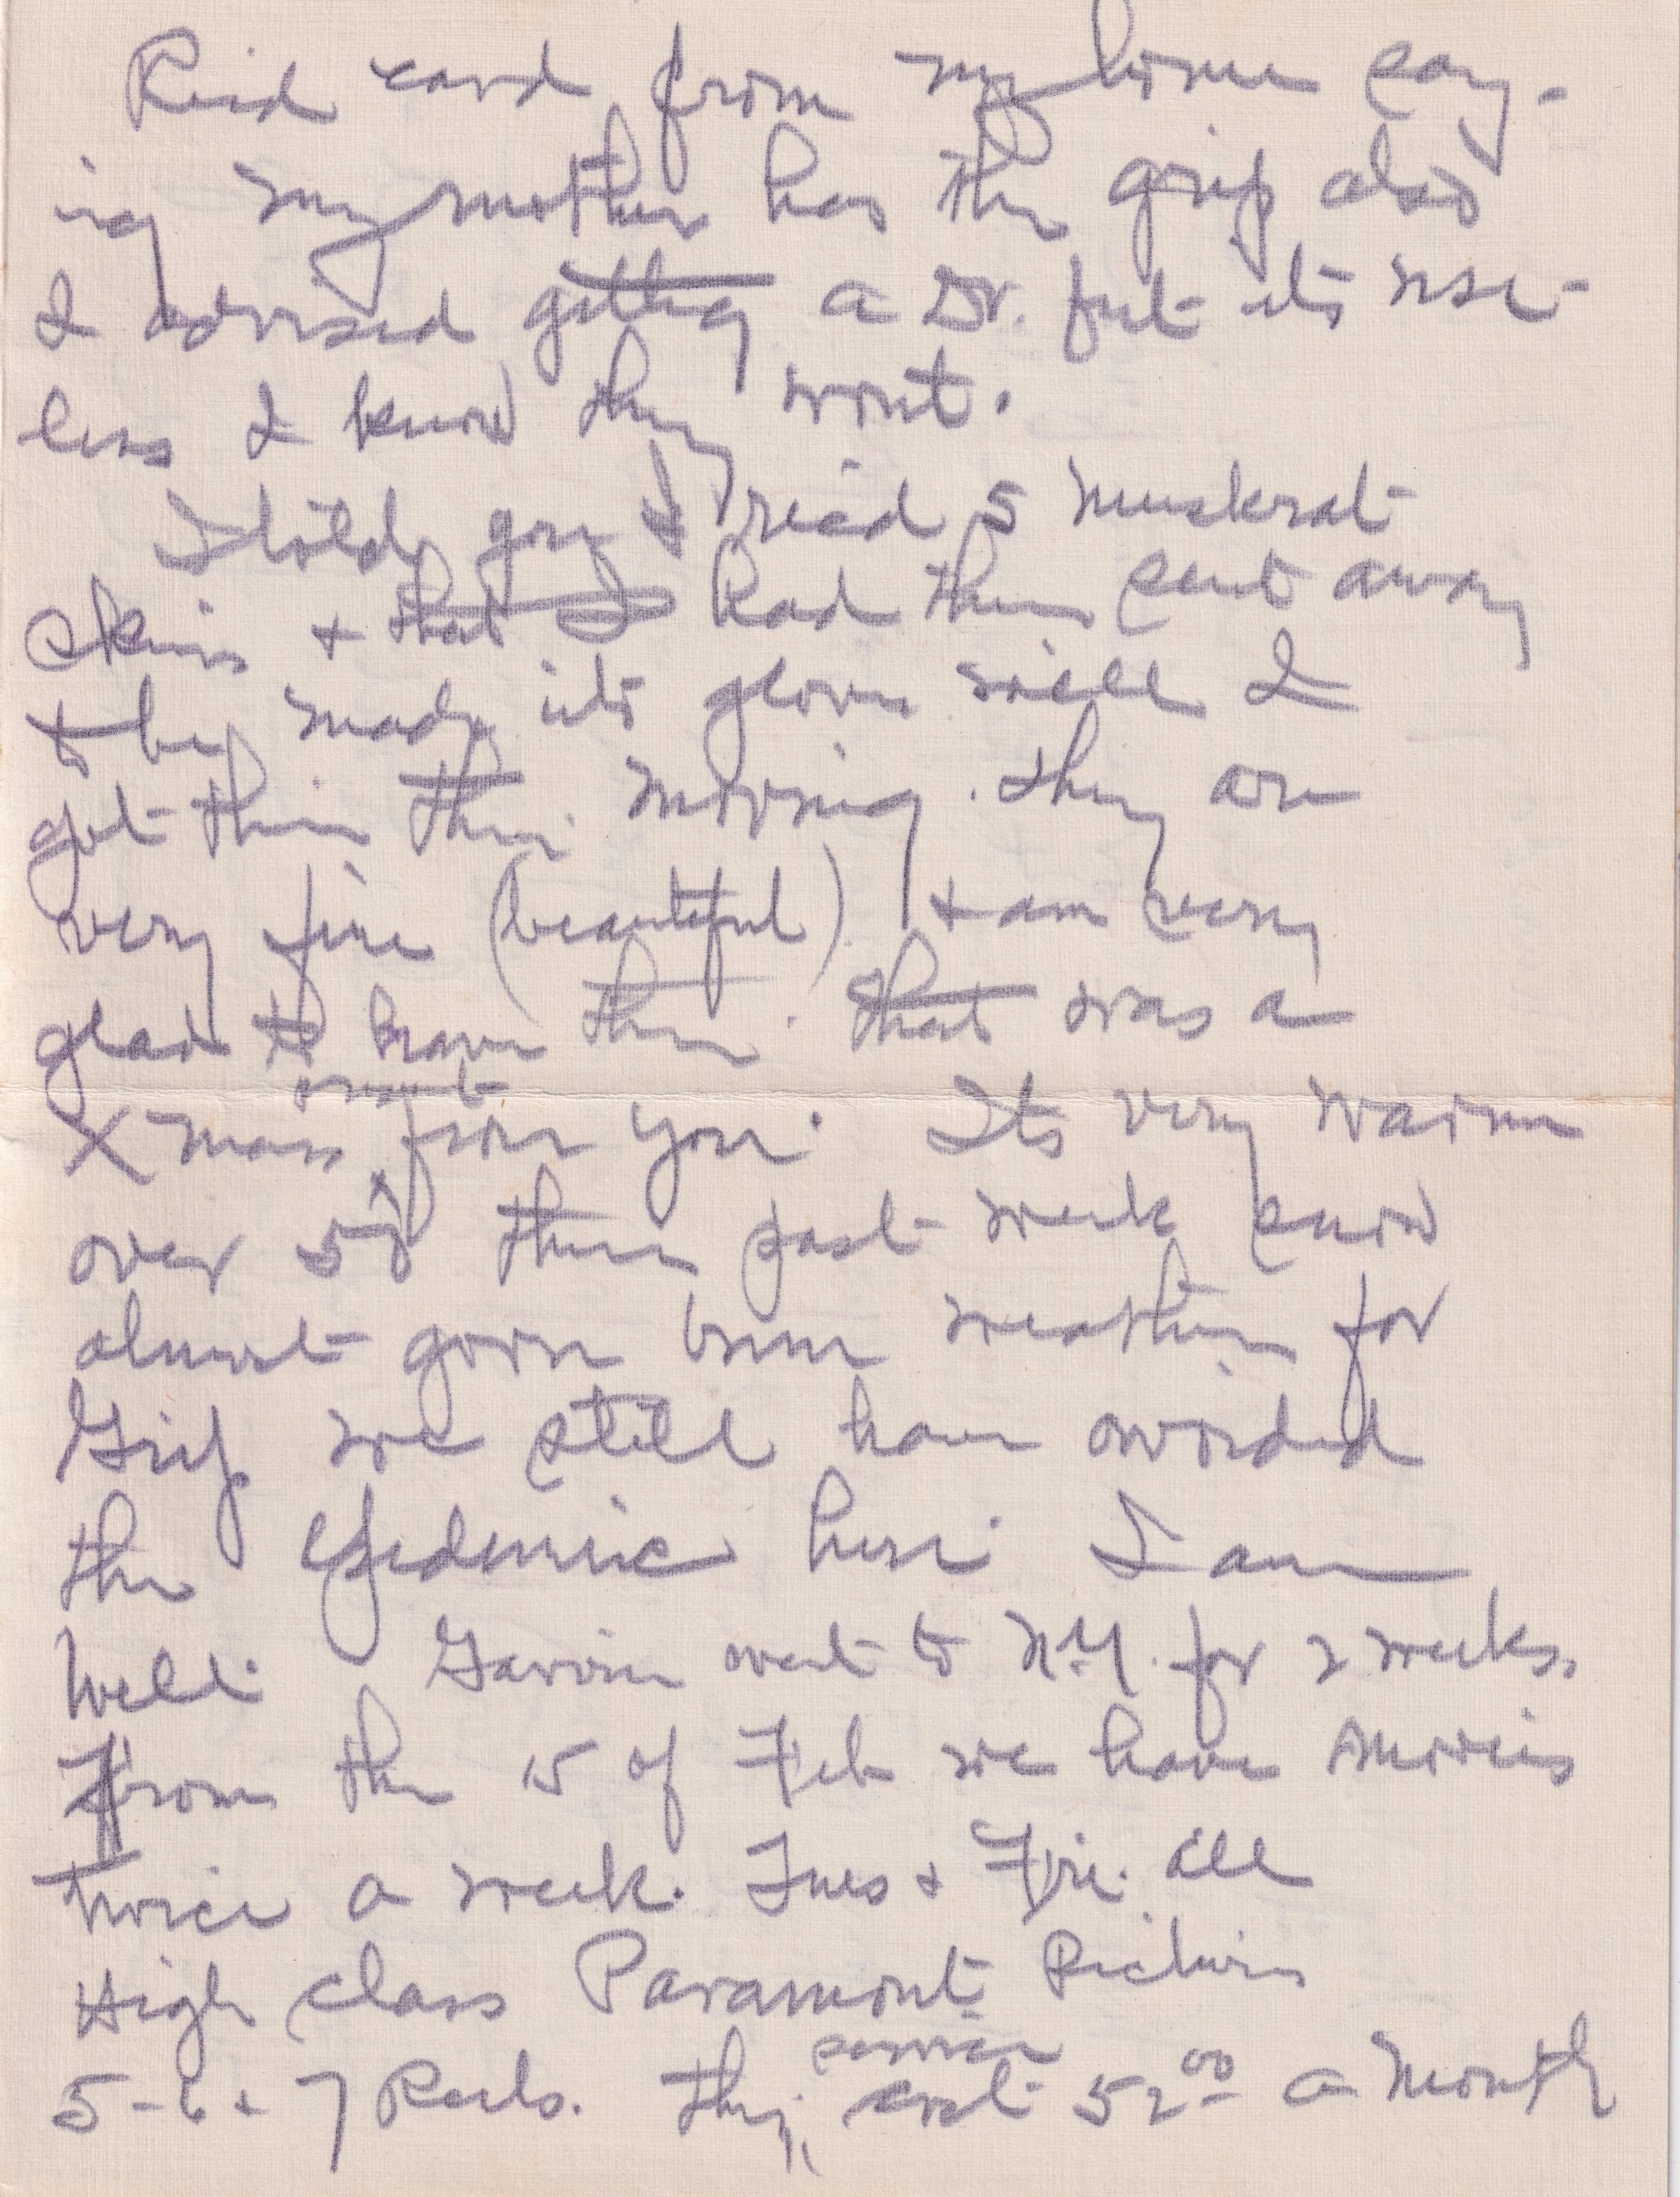 Recd card from my home say-
ing my mother has the grip also
I advised getting a Dr. but its use-
less I know they wont.
I told you I recd 5 muskrat
skins & that I had them sent away
to be made into gloves well I
got them this morning. They are
very fine (beautiful) & am very
glad to have them. That was a
present
Xmass from you. Its very warm
over 50° this past week snow
almost gone bum weather for
Grip we still have avoided
the Epedemic here. I am
well. went to N.Y. for 2 weeks.
From the 15 of Feb we have movies
twice a week. Tues & Fri. all
High class Paramont Pictures
service
5-6 & 7 Reels. They cost 52 00 a month